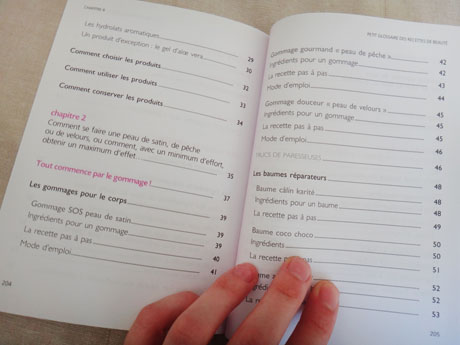 CHAPITRE 6
Les hydrolats aromatiques 29
Un produit d'exception : le gel d'aloe vera 30
Comment choisir les produits 32
Comment utiliser les produits 33
Comment conserver les produits 34
chapitre 2
Comment se faire une peau de satin, de pêche
ou de velours, ou comment, avec un minimum d'effort,
obtenir un maximum d'effet 35
Tout commence par le gommage ! 37
Les gommages pour le corps 39
Gommage SOS peau de satin 39
Ingrédients pour un gommage 39
La recette pas à pas 40
Mode d'emploi 41
204
PETIT GLOSSAIRE DES RECETTES DE BEAUTÉ
Gommage gourmand « peau de pêche » 42
Ingrédients pour un gommage 42
La recette pas à pas 43
Mode d'emploi 44
Gommage douceur « peau de velours » 45
Ingrédients pour un gommage 45
La recette pas à pas 45
Mode d'emploi 46
TRUCS DE PARESSEUSES 46
Les baumes réparateurs 48
Baume câlin karité 48
Ingrédients pour un baume 48
La recette pas à pas 49
Baume coco choco 50
Ingrédients 50
La recette pas à pas 51
Baume 52
52
53
205